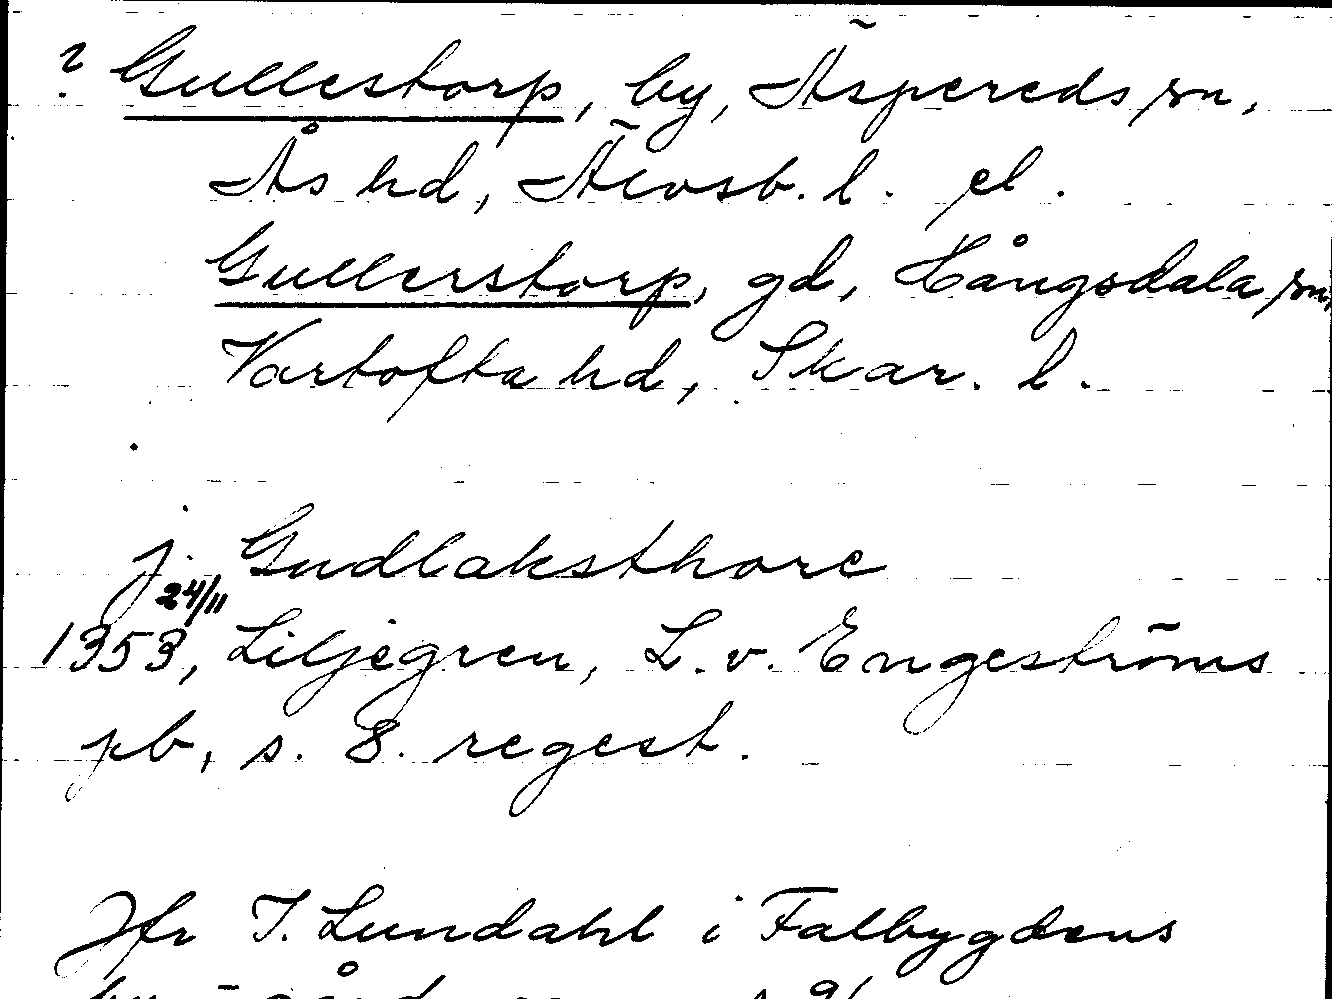 ? Gullestorp, by, Äspereds sn,
Ås hd, Älvsb. l. el.
Gullerstorp, gd, Hångsdala sn,
Vartofta hd, Skar. l.
j. Gudlaksthorc
24/11
1353, Liljegren, L. v. Engeströms
pb, s. 8. regest.
Jfr I. Lundahl i Falbygdens